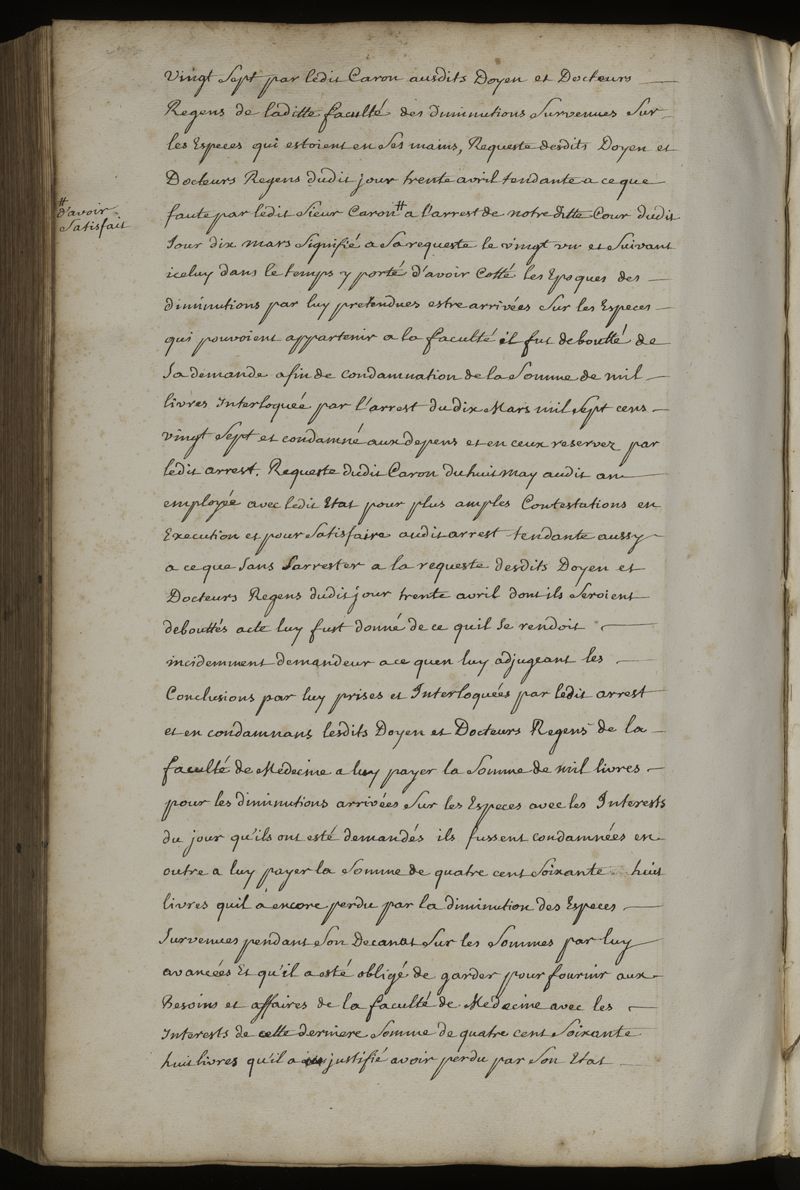 Vingt Sept par ledit Caron ausdits Doyen et Docteurs
Regens de laditte faculté des diminutions Survenues Sur
les Especes qui estoient en Ses mains, Requeste desdits Doyen et
Docteurs Regens dudit jour trente avril tendante a ce que
# d'avoir Satisfait
faute par ledit Sieur Caron # a l'arrest de notre ditte Cour dudit
Jour dix mars Signifié a Sa requeste le vingt un et Suivant
iceluy dans le temps y porté d'avoir Cotté les Epoques des
diminutions par luy pretendues estre arrivées Sur les Especes
qui pouvoient appartenir a la faculté il fut deboutté de
Sa demande afin de condamnation de la Somme de mil
livres Interloquée par l'arrest du dix Mars mil Sept cens
vingt Sept et condamné aux depens et en ceux reservez par
ledit arrest. Requeste dudit Caron du huit may audit an
employée avec ledit Etat pour plus amples Contestations en
Execution et pour Satisfaire audit arrest tendante aussy
a ce que Sans Sarrester a la requeste desdits Doyen et
Docteurs Regens dudit jour trente avril dont ils Seroient
debouttés acte luy fust donné de ce quil Se rendoit
incidemment demandeur a ce quen luy adjugeant les
Conclusions par luy prises et Interloquées par ledit arrest
et en condamnans lesdits Doyen et Docteurs Regens de la
faculté de Medecine a luy payer la Somme de mil livres
pour les diminutions arrivées Sur les Especes avec les Interests
du jour qu'ils ont esté demandés ils fussent condamnées en
outre a luy payer la Somme de quatre cent Soixante huit
livres quil a encore perdu par la diminution des Especes
Survenues pendant Son Decanat Sur les Sommes par luy
avancées Et qu'il a esté obligé de garder pour fournir aux
Besoins et affaires de la faculté de Medecine avec les
Interests de cette derniere Somme de quatre cent Soixante
huit livres qu'il a justifié avoir perdu par Son Etat